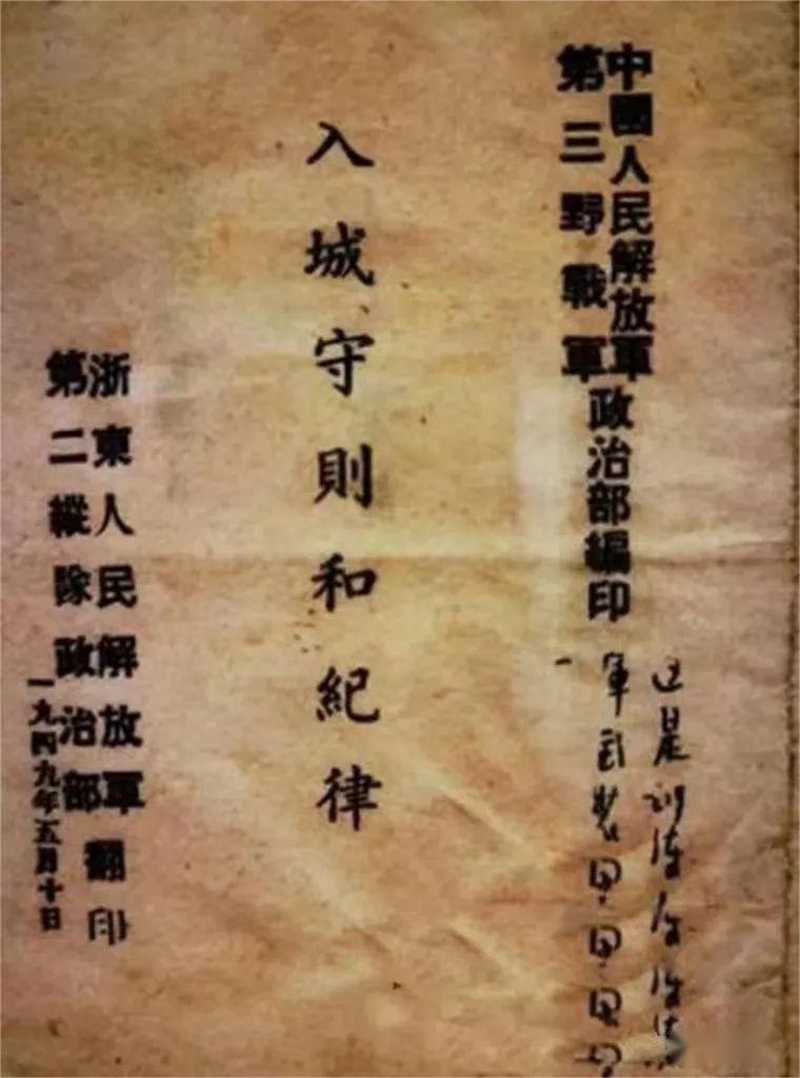 中國人民解放軍
第三野戰軍
政治部編印
入城守則和紀律
浙東人民解放軍
第二縱隊政治部
翻印
一九四九年五月十日